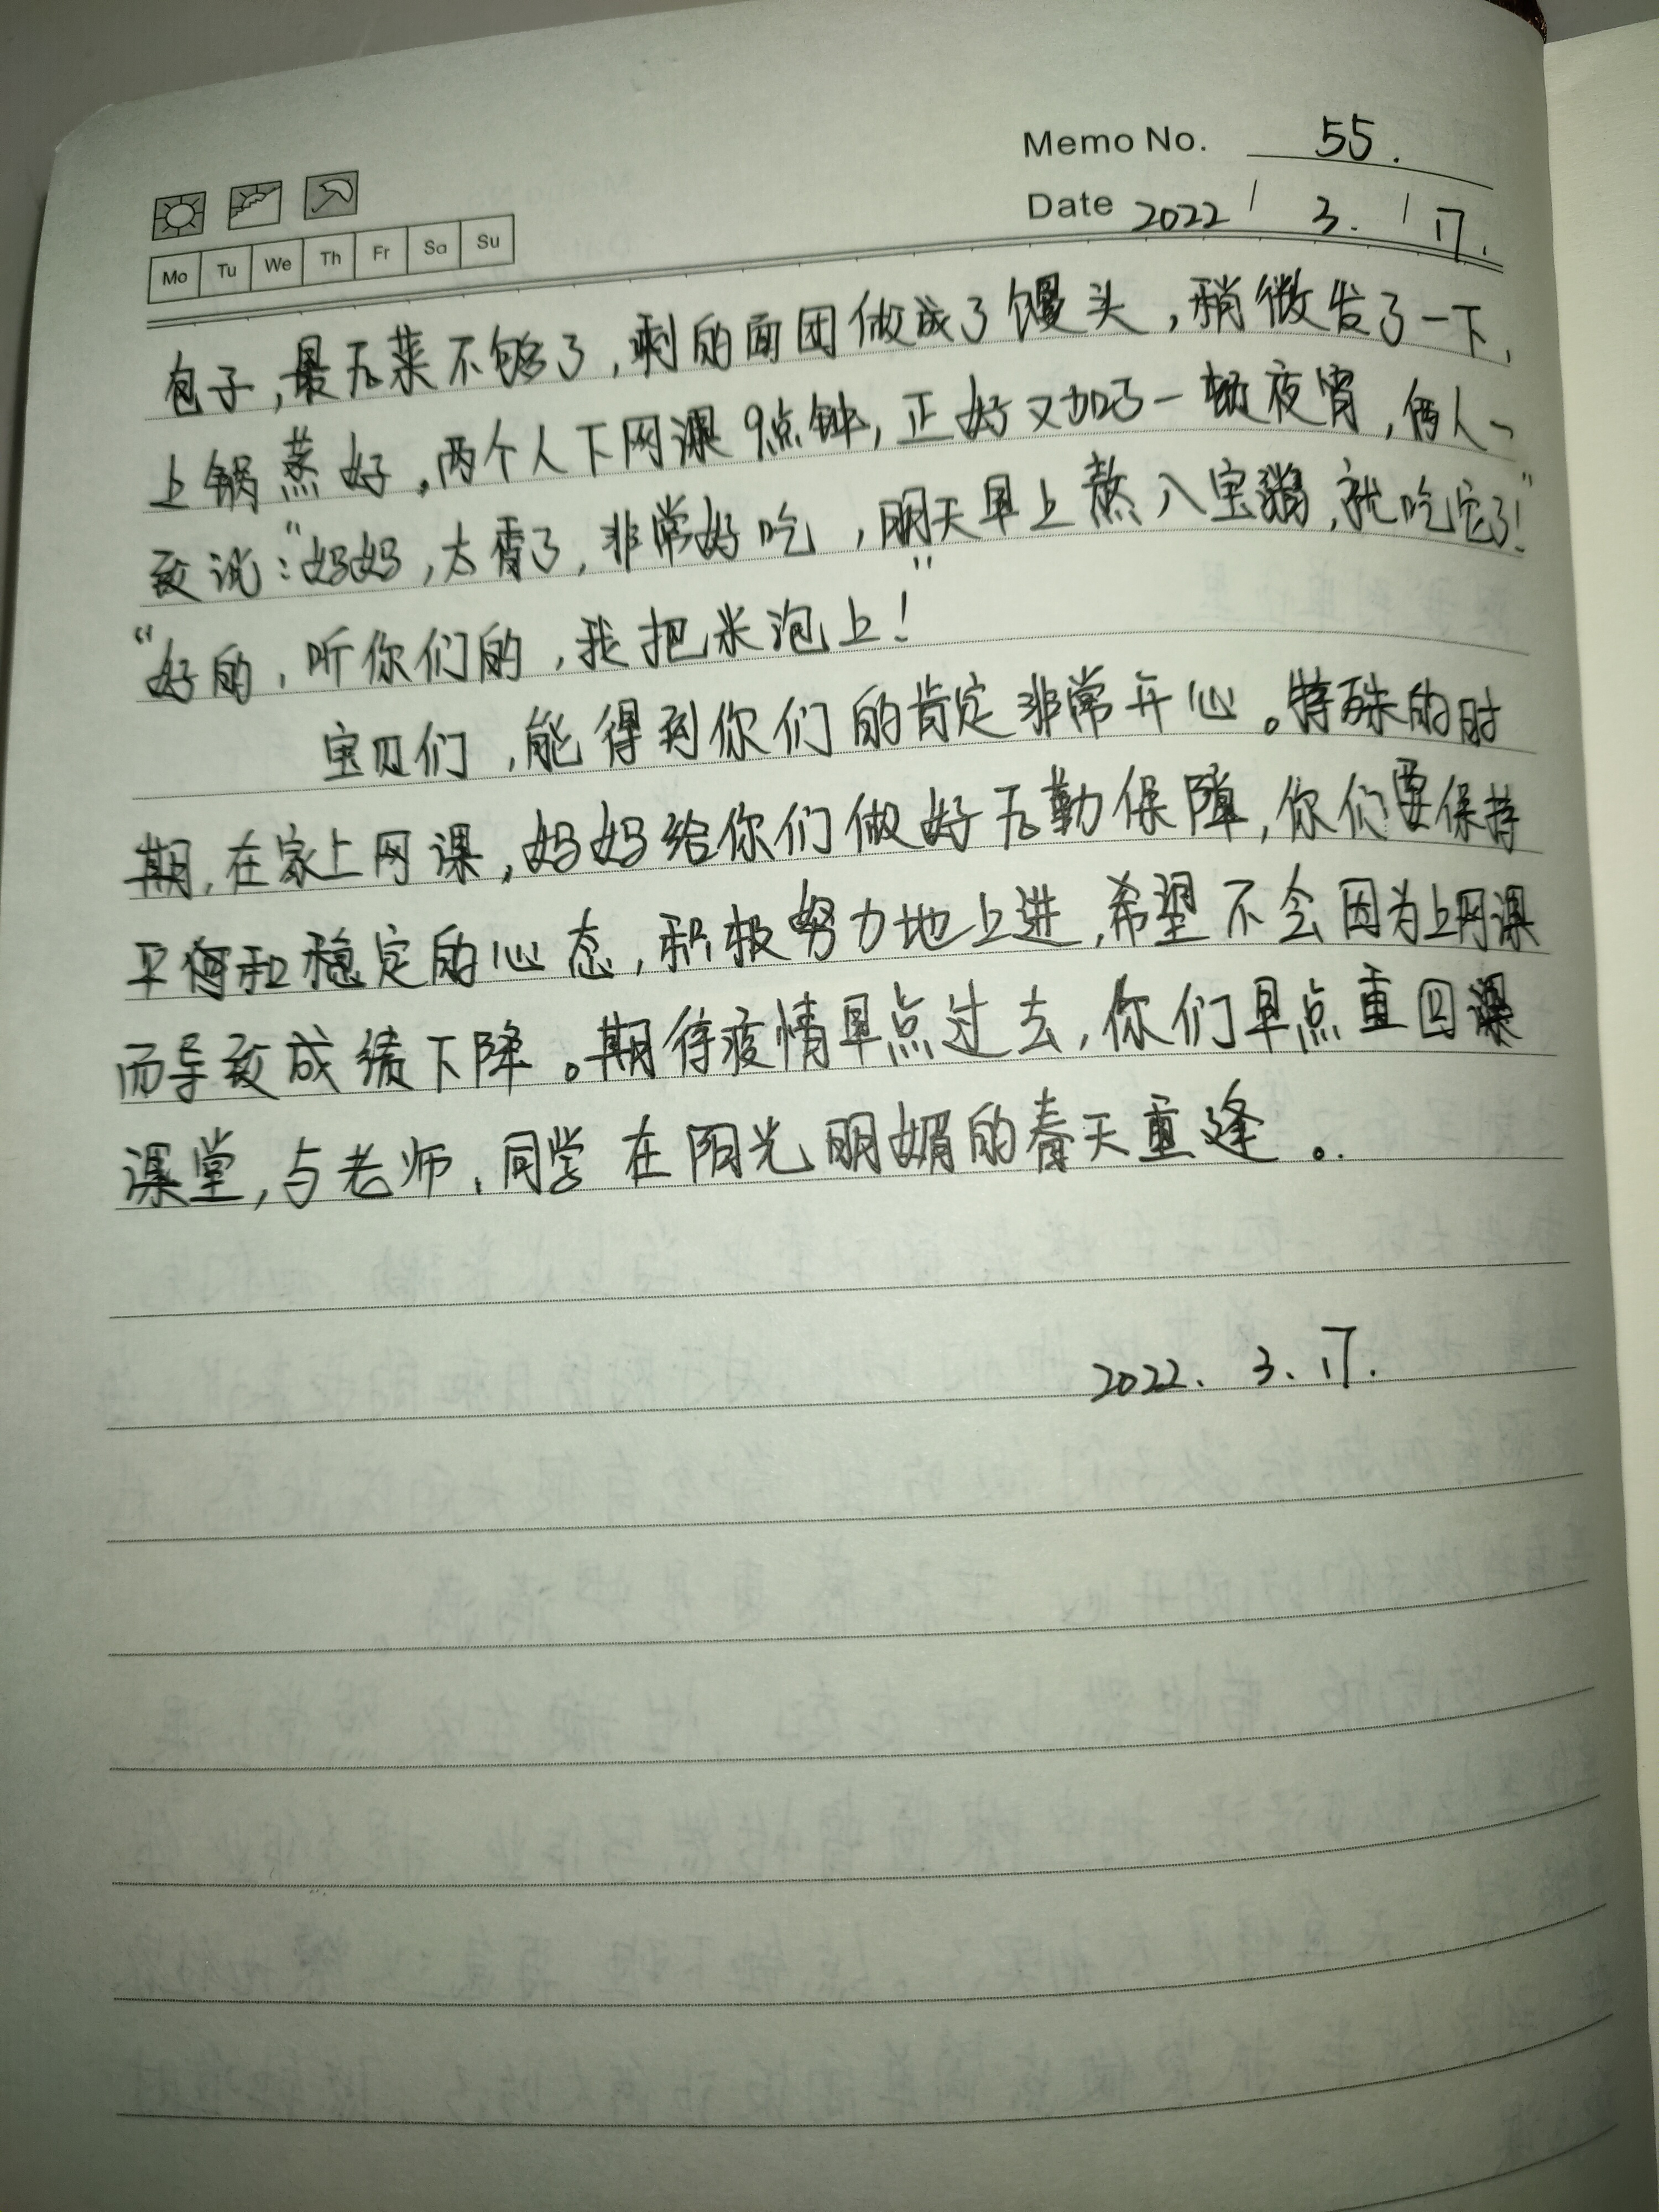 Memo No. 55.
Date 2022 / 3. / 17.
Mo Tu We Th Fr Sa Su
包子,最后菜不够了,剩的面团做成了馒头,稍微发了一下,
上锅蒸好。两个人下网课9点钟,正好又加了一顿夜宵,俩人一
致说:“妈妈,太香了,非常好吃,明天早上熬八宝粥,就吃它了!”
“好的,听你们的,我把米泡上!”
宝贝们,能得到你们的肯定非常开心。特殊的时
期,在家上网课,妈妈给你们做好后勤保障,你们要保持
平和稳定的心态,积极努力地上进,希望不会因为上网课
而导致成绩下降。期待疫情早点过去,你们早点重回课
课堂,与老师、同学在阳光明媚的春天重逢。
2022. 3. 17.